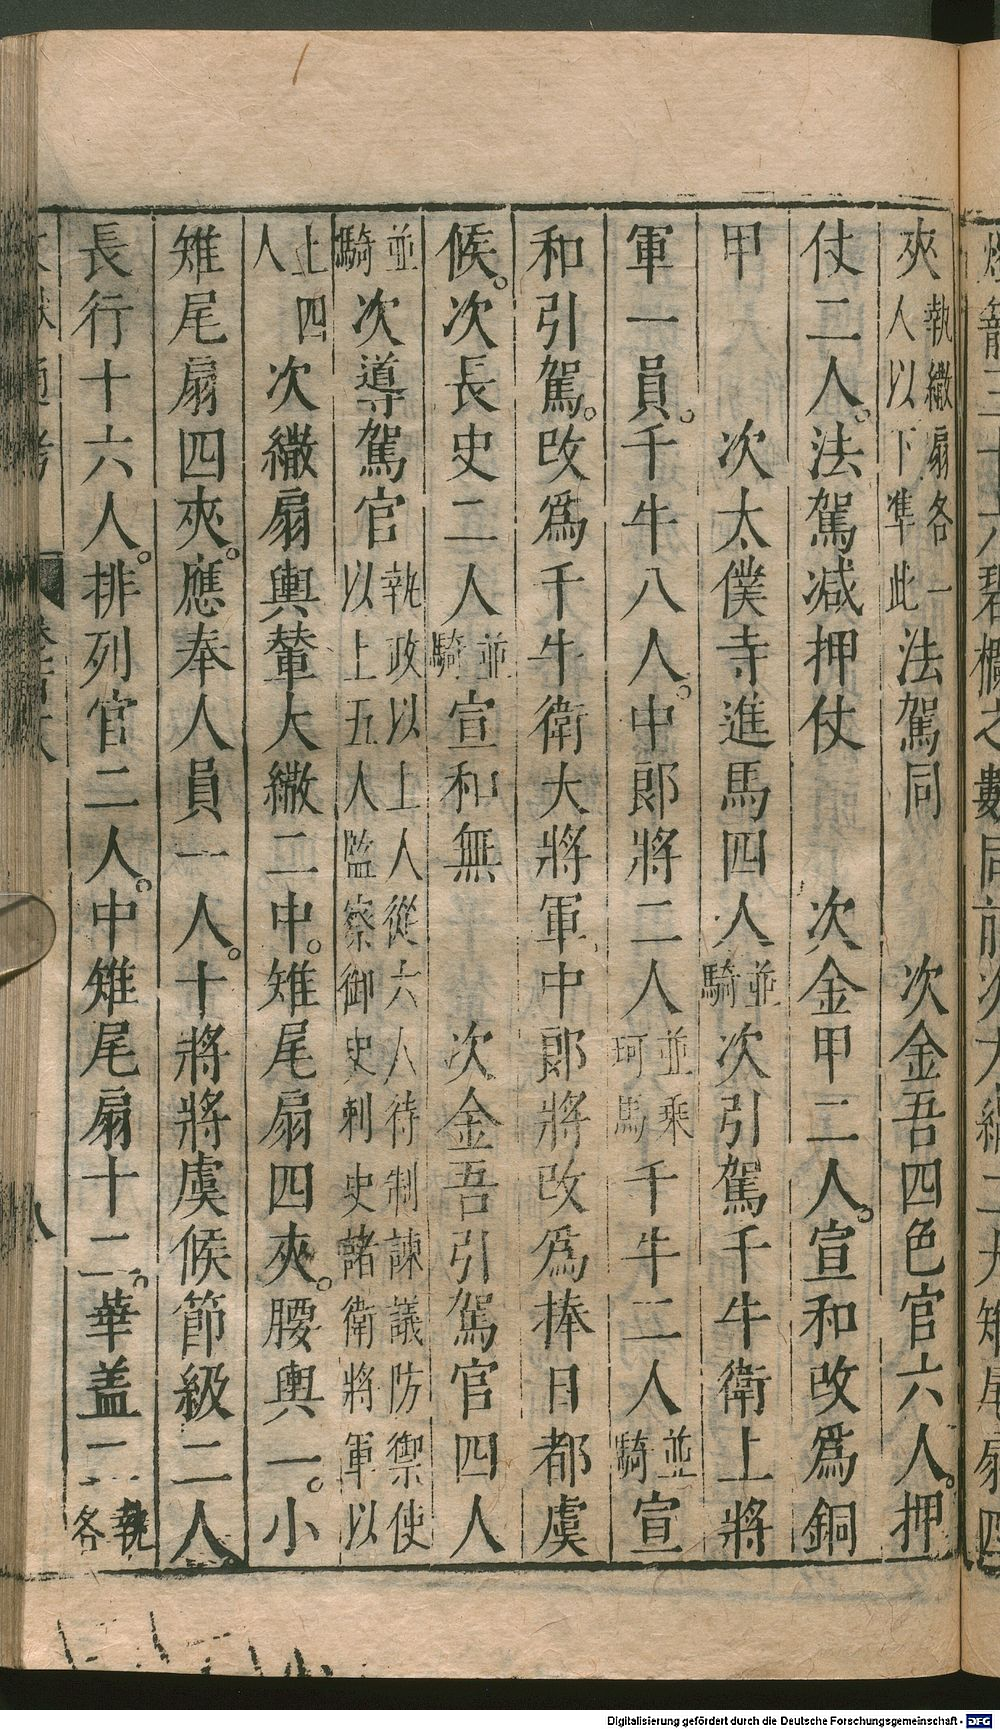 夾執繖扇各一人以下準此法駕同　次金吾四色官六人。押
仗二人。法駕減押仗　次金甲二人。宣和改爲銅
甲　次太僕寺進馬四人並騎次引駕千牛衛上將
軍一員。千牛八人。中郎將二人並乘珂馬千牛二人並騎宣
和引駕。改爲千牛衛大將軍中郎將改爲捧日都虞
候。次長史二人並騎宣和無　次金吾引駕官四人
並騎次導駕官執政以上人從六人待制諫議防禦使以上五人監察御史刺史諸衛將軍以
上四人　次繖扇輿輦大繖二中。雉尾扇四夾。腰輿一。小
雉尾扇四夾。應奉人員一人。十將將虞候節級二人
長行十六人。排列官二人。中雉尾扇十二。華蓋二執各
Digitalisierung gefördert durch die Deutsche Forschungsgemeinschaft - DFG